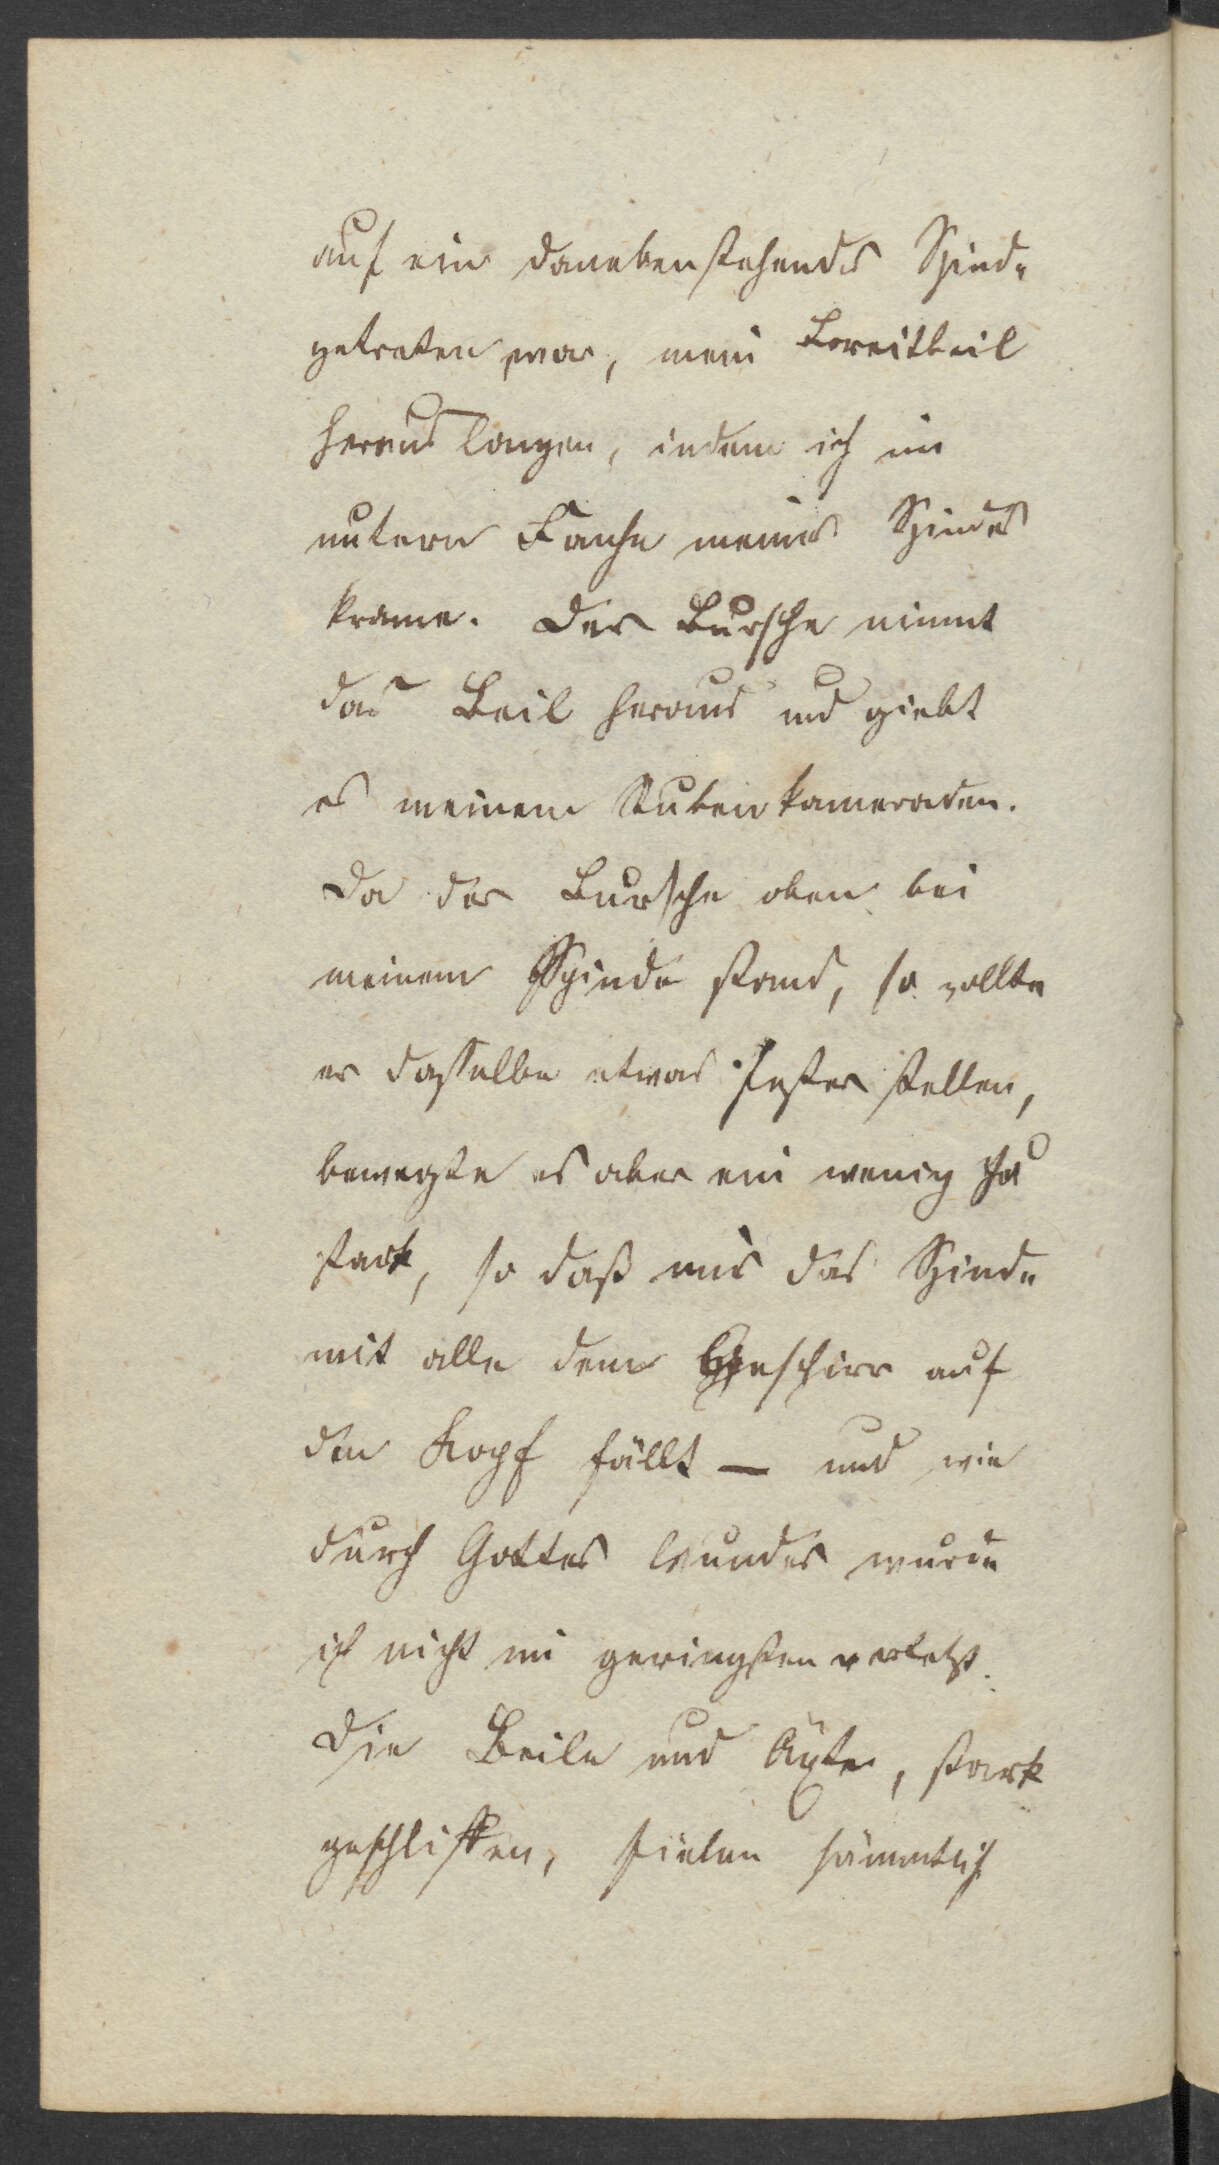 auf ein danebenstehendes Spinde
getreten war, mein Breitbeil
herauslangen, indem ich im
untern Fache meines Spindes
krame. Der Bursche nimmt
das Beil heraus und giebt
es meinem Stubenkameraden.
Da der Bursche oben bei
meinem Spinde stand, so wollte
er dasselbe etwas fester stellen,
bewegte es aber ein wenig zu
stark, so daß mir das Spinde
mit alle dem Geschirr auf
den Kopf fällt — und wie
durch Gottes Wunder wurde
ich nicht im geringsten verletzt.
Die Beile und Äxte, stark
geschliffen, fielen sämmtlich